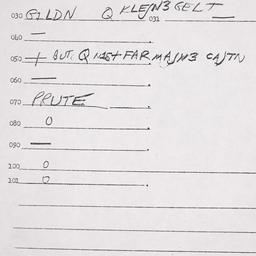 030 GILDN Q KLEJN3 GELT 031 —
040 —
050 + BUT. Q FAR MAJN3 CAJTN
060 —
070 PRUTE
080 0
090 —
100 0
101 0